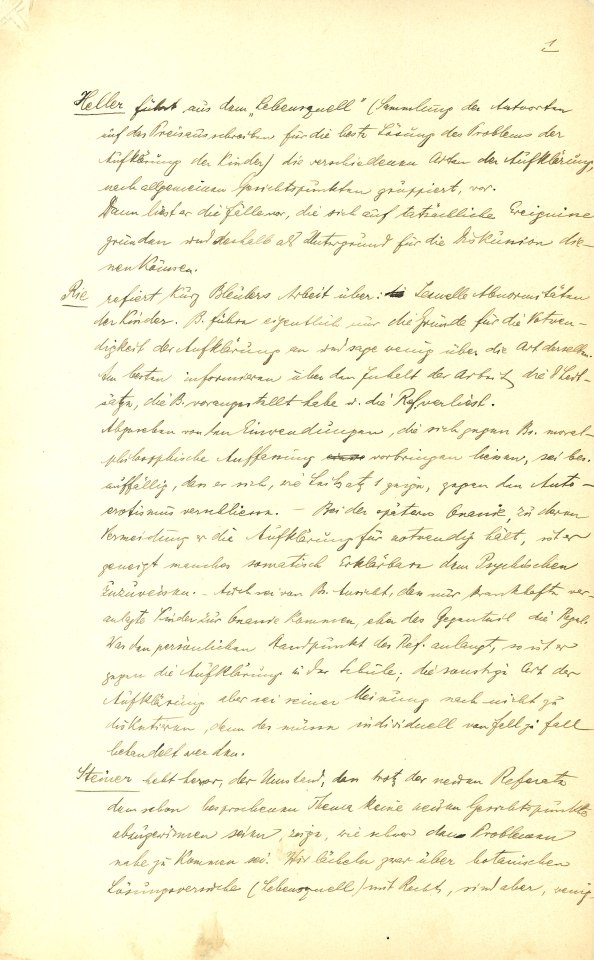 1
Heller führt aus dem „Lebensquell" (Sammlung der Antworten
auf das Preisausschreiben für die beste Lösung des Problems der
Aufklärung der Kinder) die verschiedenen Arten der Aufklärung,
nach allgemeinen Gesichtspunkten gruppiert, vor.
Dann liest er die Fälle vor, die sich auf tatsächliche Ereignisse
gründen und deshalb als Untergrund für die Diskussion die-
nen können.
Rie refiert kurz Bleulers Arbeit über: Sexuelle Abnormitäten
der Kinder. B. führe eigentlich nur die Gründe für die Notven-
digkeit der Aufklärung an und sage wenig über die Art derselben.
Am besten informieren über den Inhalt der Arbeit, die Leit-
sätze, die B. vorangestellt habe u. die Ref. verliest.
Abgesehen von den Einwendungen, die sich gegen Bs. moral-
philosophische Auffassung vorbringen liessen, sei bei
auffällig, dass er sich, wie Leitsatz 1 zeige, gegen den Auto-
erotismus verschliesse. – Bei der späteren Onanie, zu deren
Vermeidung er die Aufklärung für notvendig hält, ist er
geneigt manches somatisch Erklärbare dem Psychischen
zuzuveisen. – Auch sei von B. Ansicht, dass nur krankhaft ver-
anlagte Kinder zur Onanie kommen, eher das Gegenteil die Regel.
Was den persönlichen Standpunkt des Ref. anlangt, so ist er
gegen die Aufklärung in der Schule; die sonstige Art der
Aufklärung aber sei seiner Meinung nach nicht zu
diskutieren, denn das müsse individuell von Fall zu Fall
behandelt werden.
Steiner hebt hervor, der Umstand, dass trotz der neuen Referate
dem schon besprochenen Thema keine neuen Gesichtspunkte
abzugewinnen seien, zeige, wie schwer den Problemen
nahe zu kommen sei. Wir lächeln zwar über botanischen
Lösungsversuche (Lebensquell) mit Recht, sind aber, wenig-